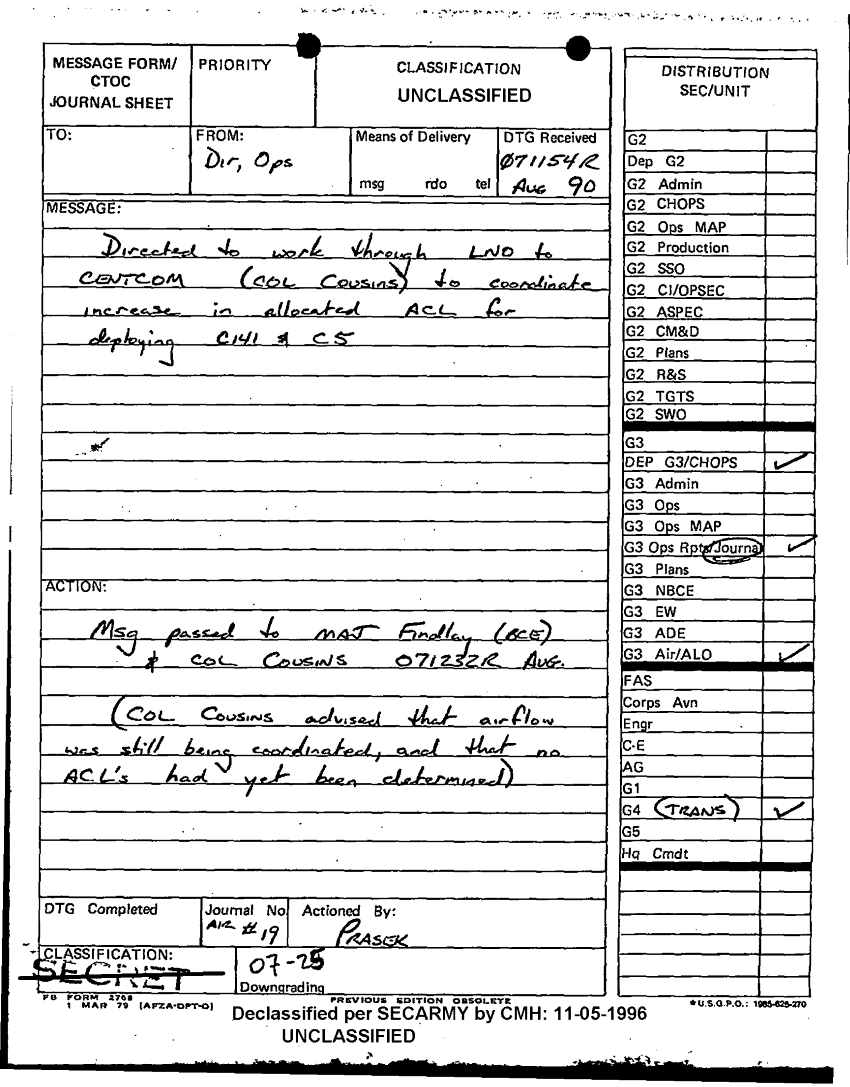 MESSAGE FORM/
CTOC
JOURNAL SHEET
PRIORITY
CLASSIFICATION
UNCLASSIFIED
TO:
FROM:
Dir, Ops
Means of Delivery
msg rdo tel
DTG Received
071154R
Aug 90
MESSAGE:
Directed to work through LNO to
CENTCOM (COL Cousins) to coordinate
increase in allocated ACL for
deploying C141 & C5
ACTION:
Msg passed to MAJ Findlay (BCE)
& COL COUSINS 071232R AUG.
(COL COUSINS advised that airflow
was still being coordinated, and that no
ACL's had yet been determined)
DTG Completed
Journal No
AIR #19
Actioned By:
PRASEK
CLASSIFICATION:
SECRET
07-25
Downgrading
FB FORM 2768
1 MAR 79 (AFZA-DPT-O)
PREVIOUS EDITION OBSOLETE
Declassified per SECARMY by CMH: 11-05-1996
UNCLASSIFIED
DISTRIBUTION
SEC/UNIT
G2
Dep G2
G2 Admin
G2 CHOPS
G2 Ops MAP
G2 Production
G2 SSO
G2 CI/OPSEC
G2 ASPEC
G2 CM&D
G2 Plans
G2 R&S
G2 TGTS
G2 SWO
G3
DEP G3/CHOPS ✓
G3 Admin
G3 Ops
G3 Ops MAP
G3 Ops Rpts/Journal ✓
G3 Plans
G3 NBCE
G3 EW
G3 ADE
G3 Air/ALO ✓
FAS
Corps Avn
Engr
C-E
AG
G1
G4 (TRANS) ✓
G5
Hq Cmdt
*U.S.G.P.O.: 1985-625-270